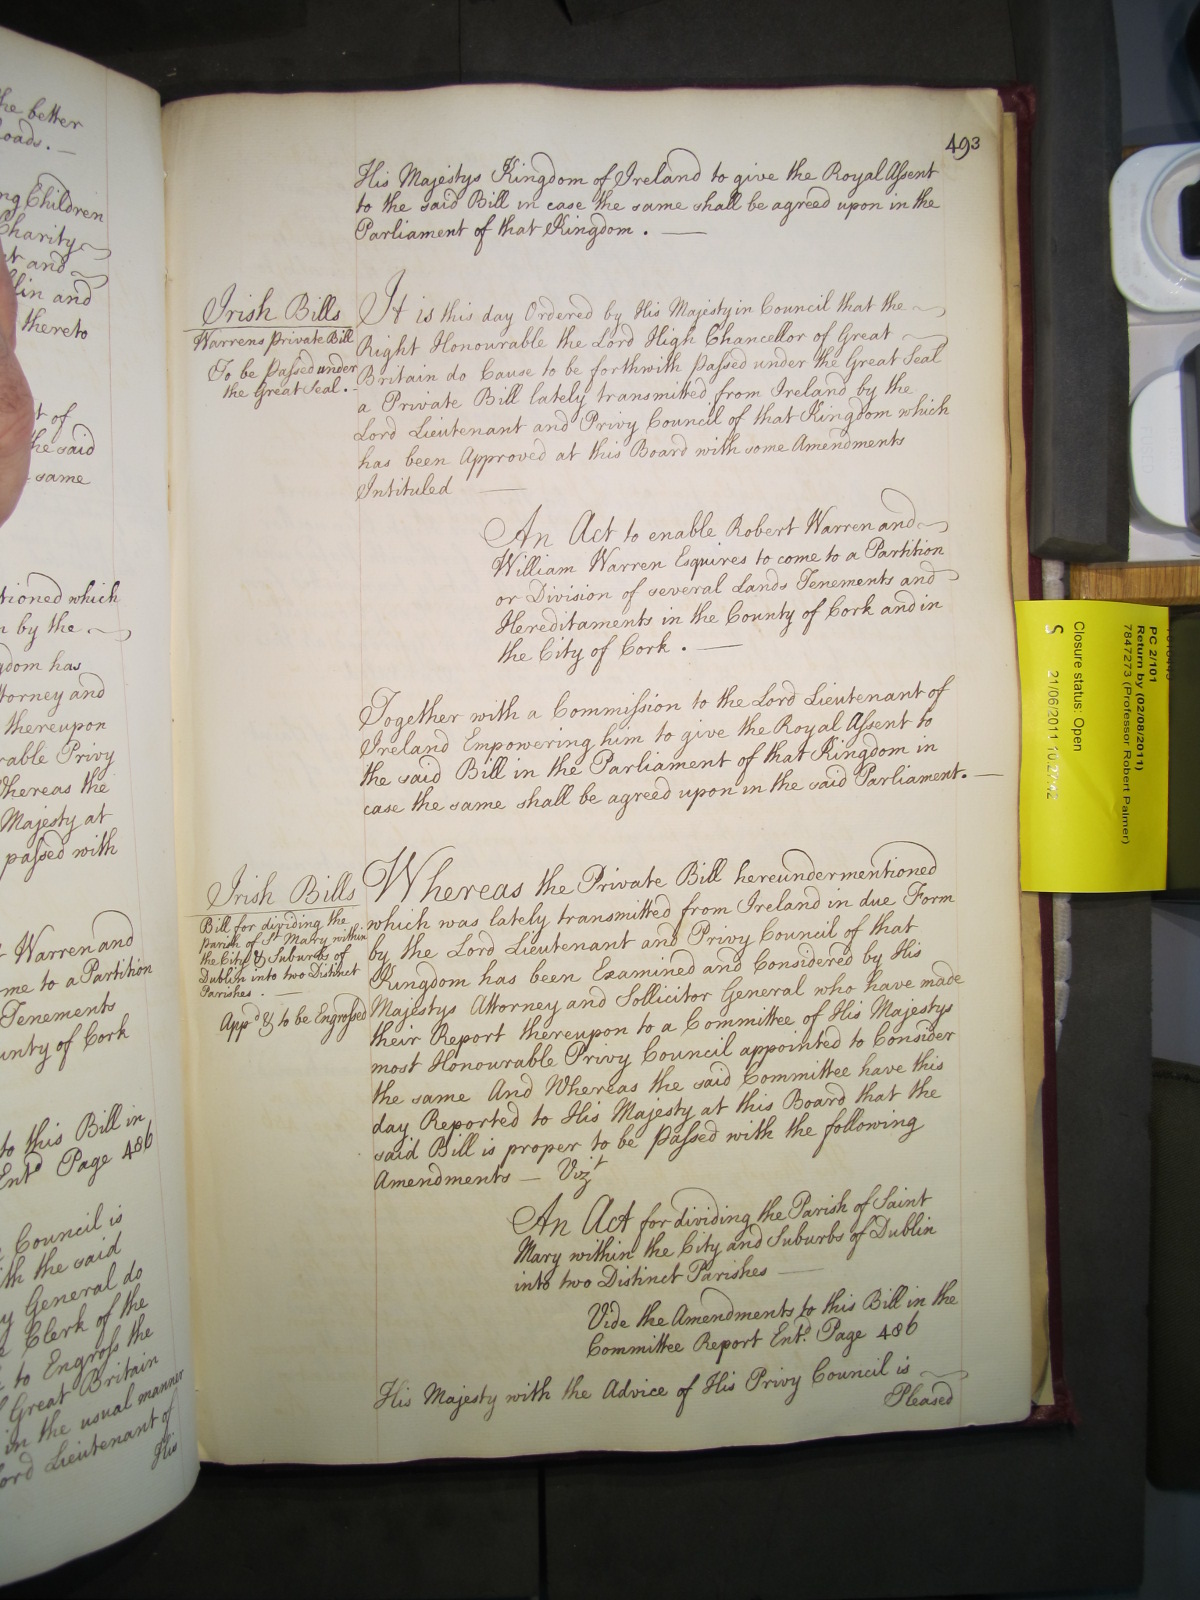 he better
oads. —
ng Children
Charity
t and
lin and
thereto
t of
he said
same
tioned which
n by the
gdom has
torney and
thereupon
rable Privy
Whereas the
Majesty at
passed with
t Warren and
me to a Partition
Tenements
unty of Cork
to this Bill in
Entd Page 486
Council is
th the said
y General do
Clerk of the
to Engross the
Great Britain
in the usual manner
ord Lieutenant of
His
493
His Majestys Kingdom of Ireland to give the Royal Assent
to the said Bill in case the same shall be agreed upon in the
Parliament of that Kingdom . —
Irish Bills
Warrens Private Bill
To be Passed under
the Great Seal . -
It is this day Ordered by His Majesty in Council that the
Right Honourable the Lord High Chancellor of Great
Britain do Cause to be forthwith Passed under the Great Seal
a Private Bill lately transmitted from Ireland by the
Lord Lieutenant and Privy Council of that Kingdom which
has been Approved at this Board with some Amendments
Intituled —
An Act to enable Robert Warren and
William Warren Esquires to come to a Partition
or Division of several Lands Tenements and
Hereditaments in the County of Cork and in
the City of Cork . —
Together with a Commission to the Lord Lieutenant of
Ireland Empowering him to give the Royal Assent to
the said Bill in the Parliament of that Kingdom in
case the same shall be agreed upon in the said Parliament. —
Irish Bills
Bill for dividing the
Parish of St Mary within
the City & Suburbs of
Dublin into two Distinct
Parishes . —
Appd & to be Engrossed
Whereas the Private Bill hereundermentioned
which was lately transmitted from Ireland in due Form
by the Lord Lieutenant and Privy Council of that
Kingdom has been Examined and Considered by His
Majestys Attorney and Sollicitor General who have made
their Report thereupon to a Committee of His Majestys
most Honourable Privy Council appointed to Consider
the same And Whereas the said Committee have this
day Reported to His Majesty at this Board that the
said Bill is proper to be Passed with the following
Amendments — Vizt
An Act for dividing the Parish of Saint
Mary within the City and Suburbs of Dublin
into two Distinct Parishes —
Vide the Amendments to this Bill in the
Committee Report Entd. Page 486
His Majesty with the Advice of His Privy Council is
Pleased
PC 2/101
Return by (02/08/2011)
7847273 (Professor Robert Palmer)
Closure status: Open
S 21/06/2011